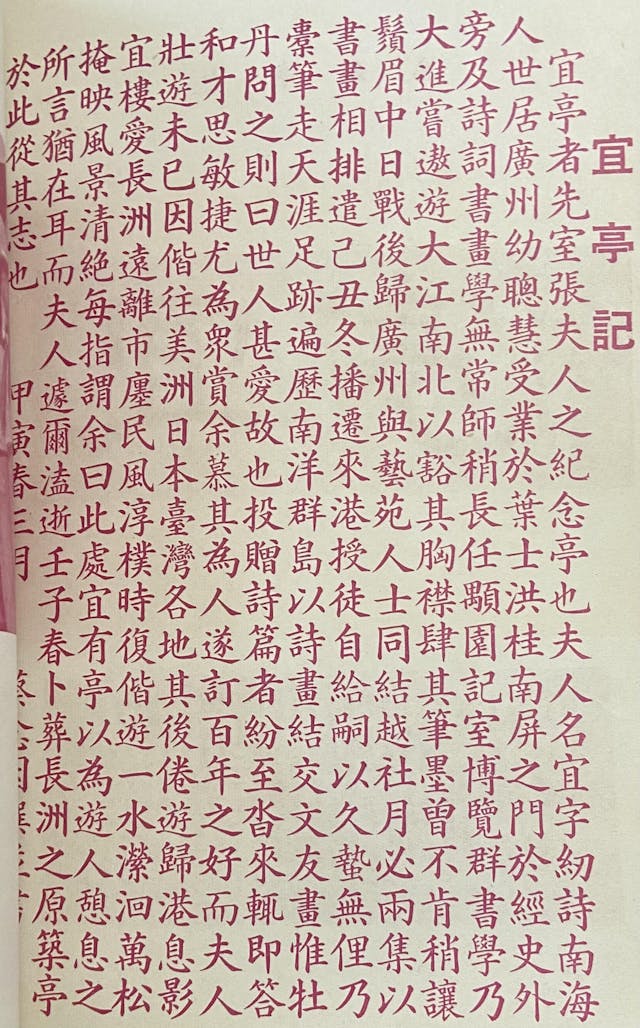 宜亭記
宜亭者先室張夫人之紀念亭也夫人名宜字紉詩南海
人世居廣州幼聰慧受業於葉士洪桂南屏之門於經史外
旁及詩詞書畫學無常師稍長任顒園記室博覽群書學乃
大進嘗遨遊大江南北以豁其胸襟肆其筆墨曾不肯稍讓
鬚眉中日戰後歸廣州與藝苑人士同結越社月必兩集以
書畫相排遣己丑冬播遷來港授徒自給嗣以久蟄無俚乃
橐筆走天涯足跡遍歷南洋群島以詩畫結交文友畫惟牡
丹問之則曰世人甚愛故也投贈詩篇者紛至沓來輒即答
和才思敏捷尤為衆賞余慕其為人遂訂百年之好而夫人
壯遊未已因偕往美洲日本臺灣各地其後倦遊歸港息影
宜樓愛長洲遠離市廛民風淳樸時復偕遊一水瀠洄萬松
掩映風景清絕每指謂余曰此處宜有亭以為遊人憩息之
所言猶在耳而夫人遽爾溘逝壬子春卜葬長洲之原築亭
於此從其志也 甲寅春三月